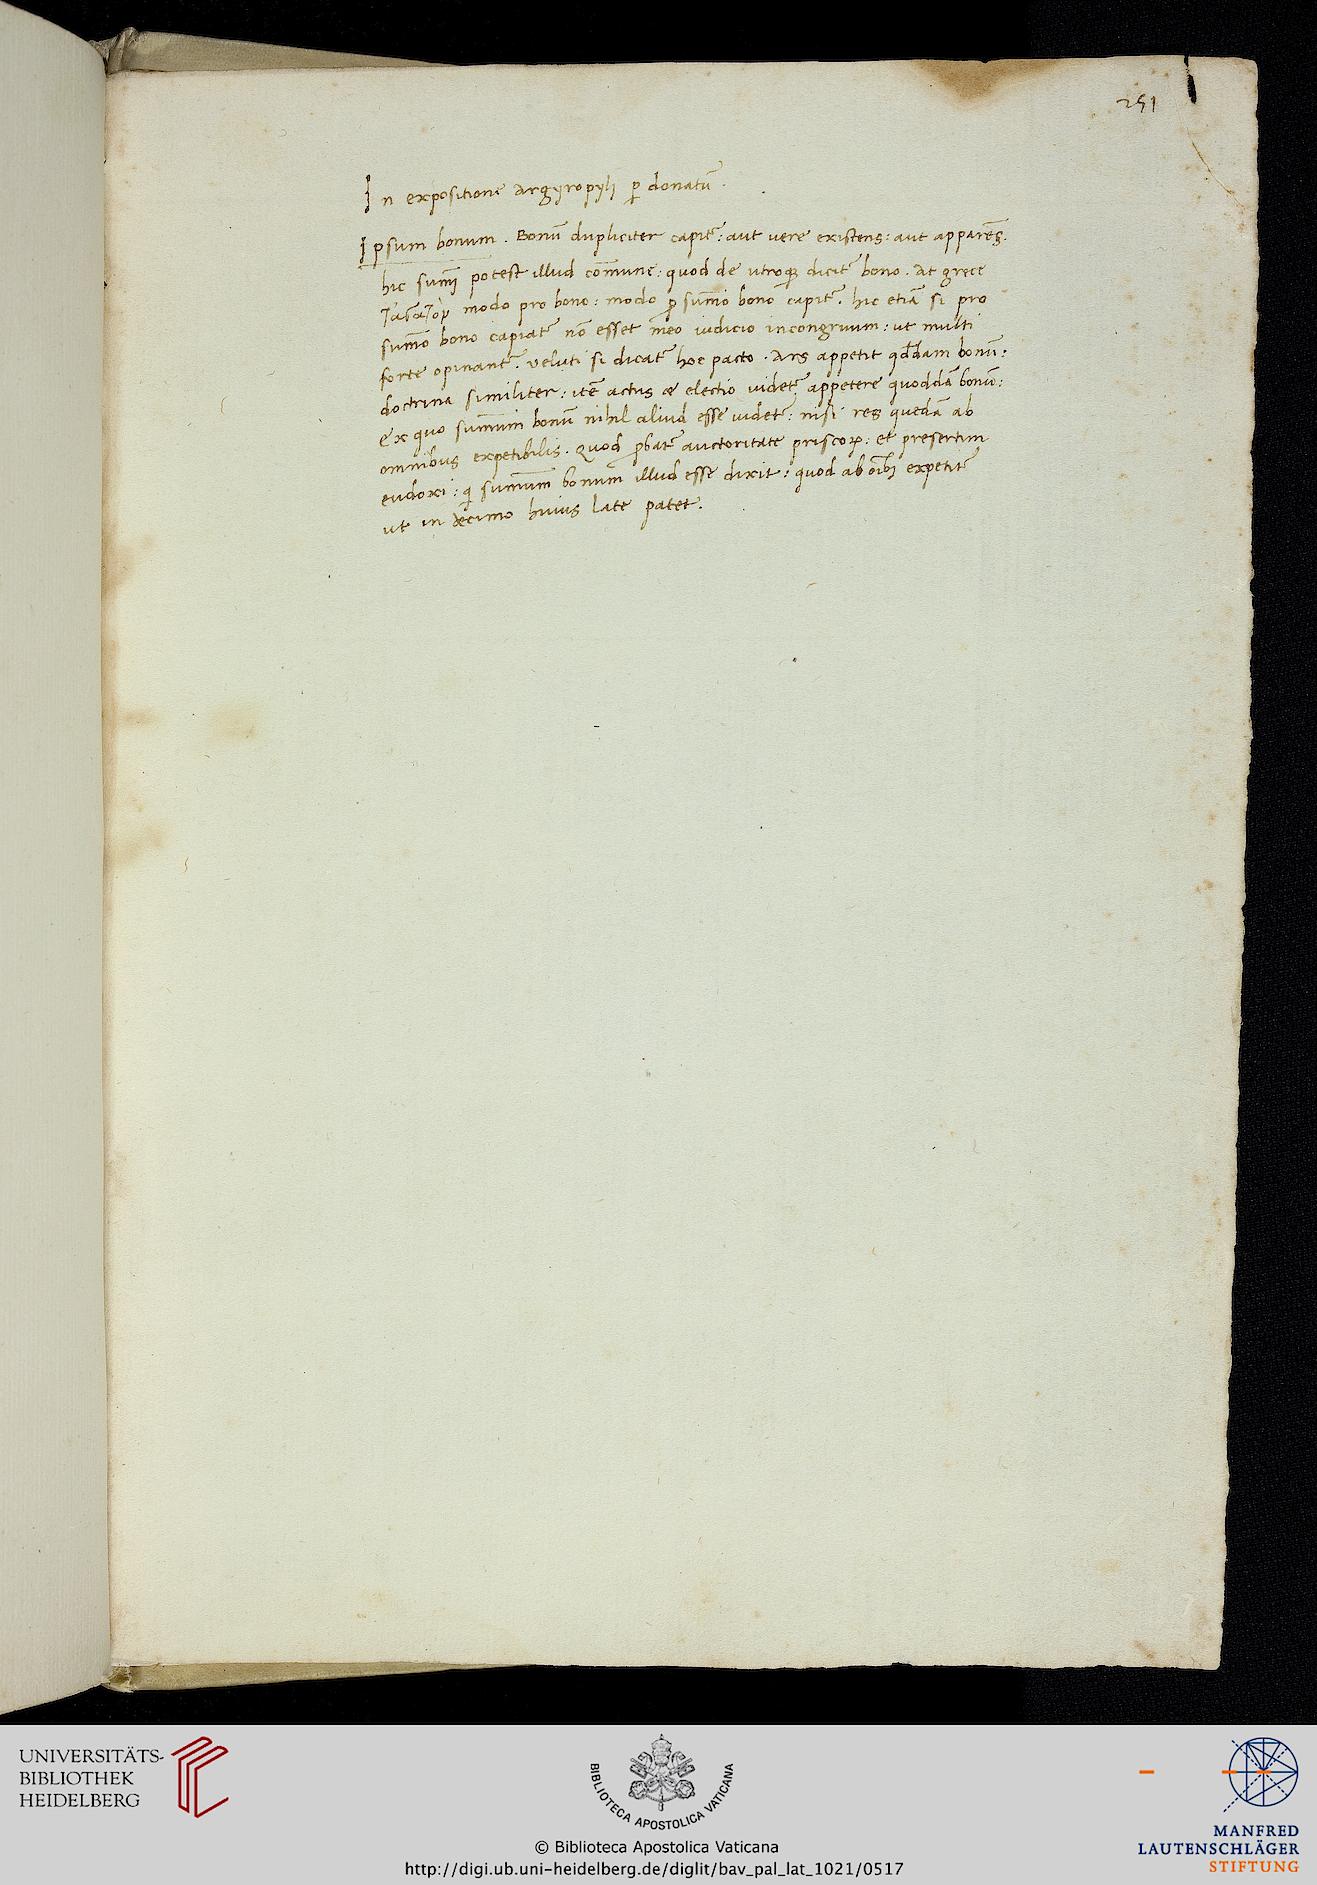 251
In expositione argyropyli p donatū.
Ipsum bonum. Bonū dupliciter capit᷑: aut vere existens: aut apparēs.
hic sumi potest illud cōmune: quod de utroqꝫ dicit᷑ bono. At grece
modo pro bono: modo ꝓ sūmo bono capit᷑. hic etiā si pro
sūmo bono capiat᷑ nō esset meo iudicio incongruum: ut multi
forte opinant᷑. veluti si dicat᷑ hoc pacto. Ars appetit qddam bonū:
doctrina similiter: itē actus & electio videt᷑ appetere quoddā bonū:
Ex quo summum bonū nihil aliud esse videt᷑: nisi res quedā ab
omnibus expetibilis. Quod ꝓbat᷑ auctoritate priscoꝝ: et presertim
eudoxi: qi summum bonum illud esse dixit: quod ab oībꝫ expetit᷑
ut in decimo huius late patet.
UNIVERSITÄTS-
BIBLIOTHEK
HEIDELBERG
BIBLIOTECA APOSTOLICA VATICANA
© Biblioteca Apostolica Vaticana
http://digi.ub.uni-heidelberg.de/diglit/bav_pal_lat_1021/0517
MANFRED
LAUTENSCHLÄGER
STIFTUNG